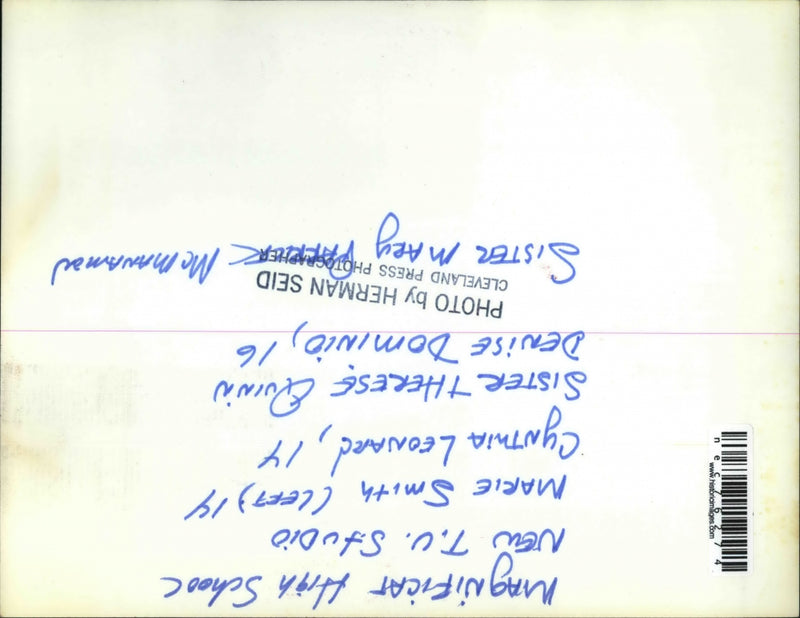 MAGNIFICAT HIGH SCHOOL
NEW T.V. STUDIO
MARIE SMITH (LEFT) 14
CYNTHIA LEONARD, 14
SISTER THERESE QUINN
DENISE DOMINIO, 16
PHOTO by HERMAN SEID
CLEVELAND PRESS PHOTOGRAPHER
SISTER MARY PATRICK McMANAMON
nec76274
www.historicimages.com